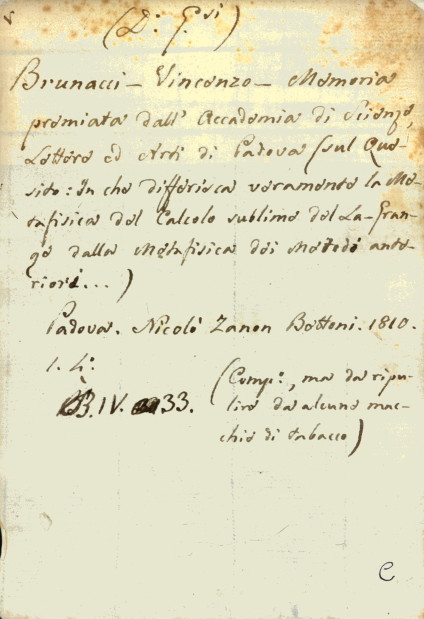 (D: G.si)
Brunacci - Vincenzo - Memoria
premiata dall' Accademia di Scienze,
Lettere ed Arti di Padova (sul Que-
sito: In che differisca veramente la Me-
tafisica del Calcolo sublime del La-Gran-
ge dalla Metafisica dei Metodi ante-
riori...)
Padova. Nicolò Zanon Bettoni. 1810.
1. 4:
B.IV. 33.
(Comp:, ma da ripu-
lire da alcune mac-
chie di tabacco)
C